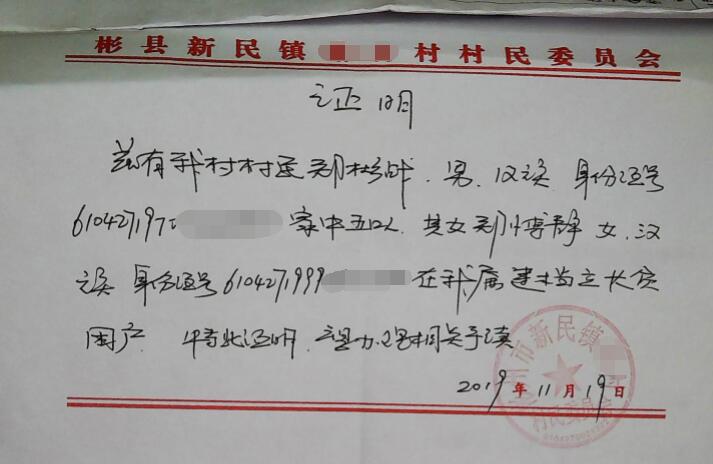 彬县新民镇 村村民委员会
证明
兹有我村村民郭 战，男，汉族 身份证号
610427197 家中五口人 其女郭博静 女，汉
族 身份证号6104271999 在我属建档立卡贫
困户 特此证明，望办理相关手续
州市新民镇
村民委员会
2019年11月19日